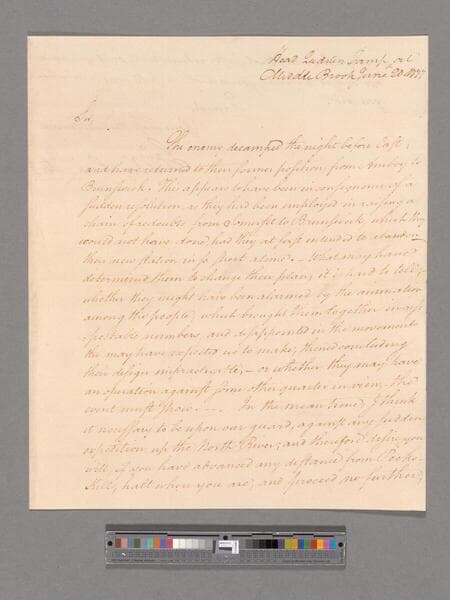 Head Quarters Camp at
Middle Brook June 20. 1777
Sir,
The enemy decamped the night before last,
and have returned to their former position from Amboy to
Brunswick. This appears to have been in consequence of a
sudden resolution, as they had been employed in raising a
chain of redoubts from Somerset to Brunswick which they
would not have done had they at first intended to abandon
their new station in so short a time. — What may have
determined them to change their plan, it is hard to tell;
whether they might have been alarmed by the animation
among the people, which brought them together in res
pectable numbers, and disappointed in the movement
they may have expected us to make; thence concluding
their design impracticable; — or whether they may have
an operation against some other quarter in view, the
event must show. — In the mean time, I think
it necessary to be upon our guard, against any sudden
expedition up the North River; and therefore desire you
will, if you have advanced any distance from Peeks-
Kill, halt where you are, and proceed no further,